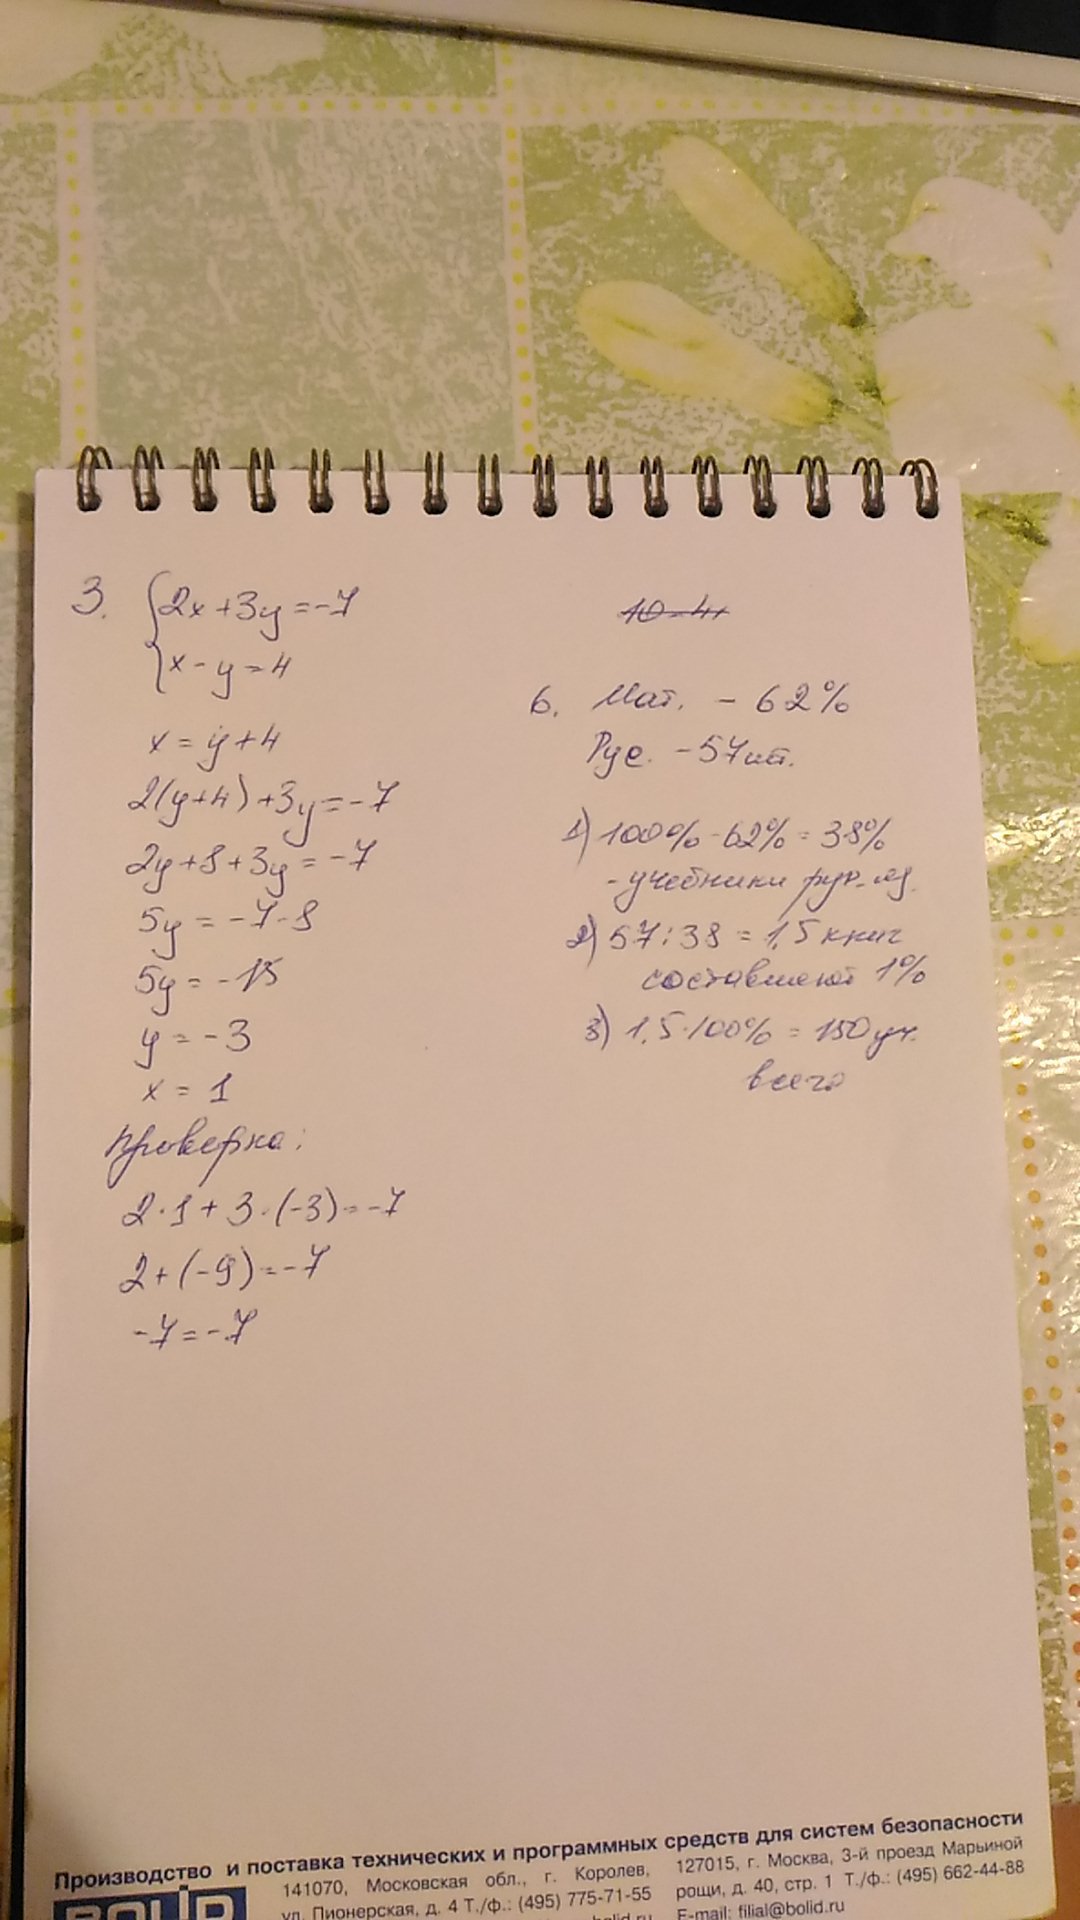 3. 2x+3y=-7
x-y=4
x=y+4
2(y+4)+3y=-7
2y+8+3y=-7
5y=-7-8
5y=-15
y=-3
x=1
Проверка:
2·1+3·(-3)=-7
2+(-9)=-7
-7=-7
6. Мат. - 62%
Рус. - 57шт.
1) 100%-62%=38%
- учебники рус. яз.
2) 57:38=1,5 книг
составляют 1%
3) 1,5·100%=150 уч.
всего
Производство и поставка технических и программных средств для систем безопасности
BOLID
141070, Московская обл., г. Королев,
ул. Пионерская, д. 4 Т./ф.: (495) 775-71-55
127015, г. Москва, 3-й проезд Марьиной
рощи, д. 40, стр. 1 Т./ф.: (495) 662-44-88
E-mail: filial@bolid.ru